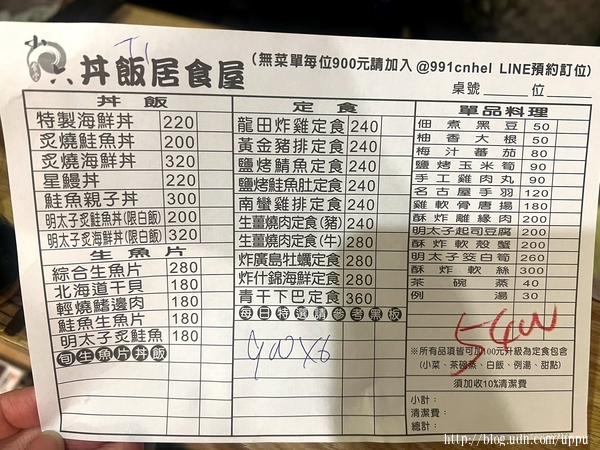 T1
小六丼飯居食屋
(無菜單每位900元請加入 @991cnhel LINE預約訂位)
桌號 位
丼飯
特製海鮮丼 220
炙燒鮭魚丼 200
炙燒海鮮丼 320
星鰻丼 220
鮭魚親子丼 300
明太子炙鮭魚丼(限白飯) 200
明太子炙海鮮丼(限白飯) 320
生魚片
綜合生魚片 280
北海道干貝 180
輕燒鰭邊肉 180
鮭魚生魚片 180
明太子炙鮭魚 180
旬生魚片丼飯
定食
龍田炸雞定食 240
黃金豬排定食 240
鹽烤鯖魚定食 240
鹽烤鮭魚肚定食 240
南蠻雞排定食 240
生薑燒肉定食(豬) 240
生薑燒肉定食(牛) 280
炸廣島牡蠣定食 280
炸什錦海鮮定食 280
青干下巴定食 360
每日特選請參考黑板
900x6
單品料理
佃煮黑豆 50
柚香大根 50
梅汁蕃茄 80
鹽烤玉米筍 90
手工雞肉丸 90
名古屋手羽 120
雞軟骨唐揚 180
酥炸離緣肉 200
明太子起司豆腐 200
酥炸軟殼蟹 200
明太子筊白筍 260
酥炸軟絲 300
茶碗蒸 40
例湯 30
5400
※所有品項皆可加100元升級為定食包含
(小菜、茶碗蒸、白飯、例湯、甜點)
須加收10%清潔費
小計：
清潔費：
總計：
http://blog.udn.com/uppu